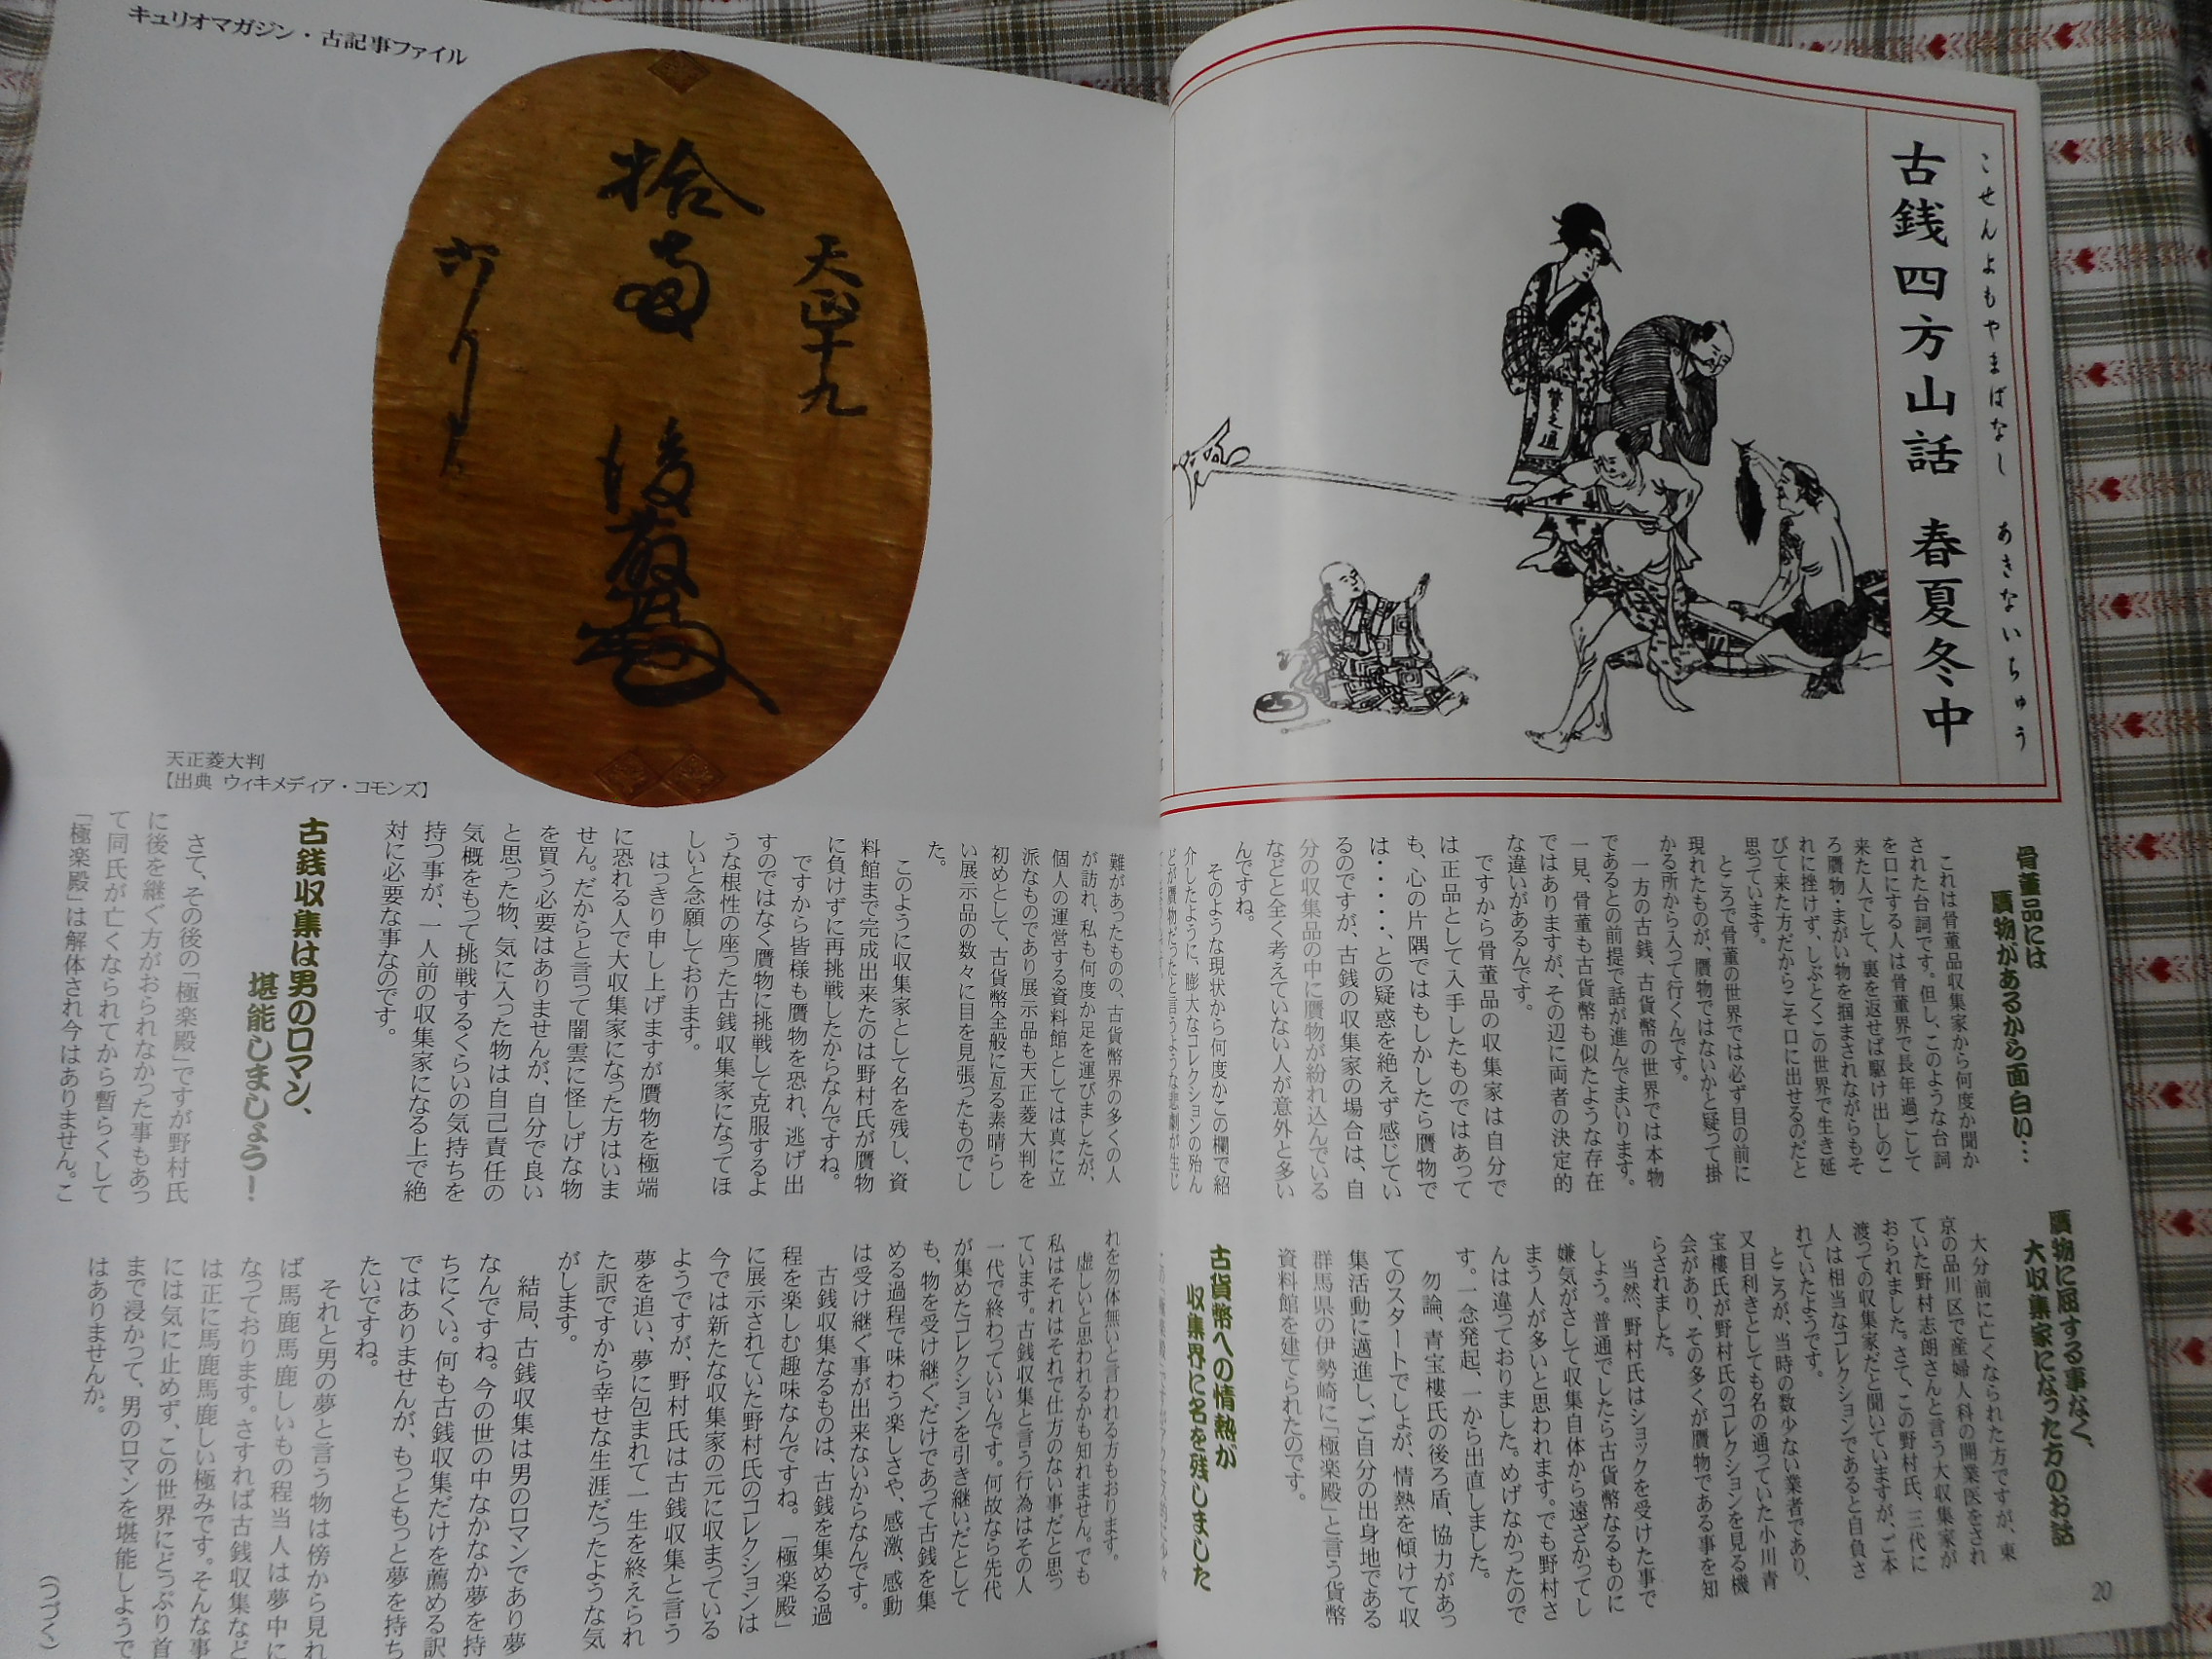 こせんよもやまばなし あきないちゅう
古銭四方山話 春夏冬中
骨董品には
贋物があるから面白い…
これは骨董品収集家から何度か聞か
された台詞です。但し、このような台詞
を口にする人は骨董界で長年過ごして
来た人でして、裏を返せば駆け出しのこ
ろ贋物・まがい物を掴まされながらもそ
れに挫けず、しぶとくこの世界で生き延
びて来た方だからこそ口に出せるのだと
思っています。
ところで骨董の世界では必ず目の前に
現れたものが、贋物ではないかと疑って掛
かる所から入って行くんです。
一方の古銭、古貨幣の世界では本物
であるとの前提で話が進んでまいります。
一見、骨董も古貨幣も似たような存在
ではありますが、その辺に両者の決定的
な違いがあるんです。
ですから骨董品の収集家は自分で
は正品として入手したものではあって
も、心の片隅ではもしかしたら贋物で
は・・・・・、との疑惑を絶えず感じてい
るのですが、古銭の収集家の場合は、自
分の収集品の中に贋物が紛れ込んでいる
などと全く考えていない人が意外と多い
んですね。
そのような現状から何度かこの欄で紹
介したように、膨大なコレクションの殆ん
どが贋物だったと言うような悲劇が生じ
贋物に屈する事なく、
大収集家になった方のお話
大分前に亡くなられた方ですが、東
京の品川区で産婦人科の開業医をされ
ていた野村志朗さんと言う大収集家が
おられました。さて、この野村氏、三代に
渡っての収集家だと聞いていますが、ご本
人は相当なコレクションであると自負さ
れていたようです。
ところが、当時の数少ない業者であり、
又目利きとしても名の通っていた小川青
宝樓氏が野村氏のコレクションを見る機
会があり、その多くが贋物である事を知
らされました。
当然、野村氏はショックを受けた事で
しょう。普通でしたら古貨幣なるものに
嫌気がさして収集自体から遠ざかってし
まう人が多いと思われます。でも野村さ
んは違っておりました。めげなかったので
す。一念発起、一から出直しました。
勿論、青宝樓氏の後ろ盾、協力があっ
てのスタートでしょが、情熱を傾けて収
集活動に邁進し、ご自分の出身地である
群馬県の伊勢崎に「極楽殿」と言う貨幣
資料館を建てられたのです。
古貨幣への情熱が
収集界に名を残しました
20
キュリオマガジン・古記事ファイル
天正十九
拾両後藤
天正菱大判
【出典 ウィキメディア・コモンズ】
難があったものの、古貨幣界の多くの人
が訪れ、私も何度か足を運びましたが、
個人の運営する資料館としては真に立
派なものであり展示品も天正菱大判を
初めとして、古貨幣全般に亙る素晴らし
い展示品の数々に目を見張ったものでし
た。
このように収集家として名を残し、資
料館まで完成出来たのは野村氏が贋物
に負けずに再挑戦したからなんですね。
ですから皆様も贋物を恐れ、逃げ出
すのではなく贋物に挑戦して克服するよ
うな根性の座った古銭収集家になってほ
しいと念願しております。
はっきり申し上げますが贋物を極端
に恐れる人で大収集家になった方はいま
せん。だからと言って闇雲に怪しげな物
を買う必要はありませんが、自分で良い
と思った物、気に入った物は自己責任の
気概をもって挑戦するくらいの気持ちを
持つ事が、一人前の収集家になる上で絶
対に必要な事なのです。
古銭収集は男のロマン、
堪能しましょう！
さて、その後の「極楽殿」ですが野村氏
に後を継ぐ方がおられなかった事もあっ
て同氏が亡くなられてから暫らくして
「極楽殿」は解体され今はありません。こ
れを勿体無いと言われる方もおります。
虚しいと思われるかも知れません。でも
私はそれはそれで仕方のない事だと思っ
ています。古銭収集と言う行為はその人
一代で終わっていいんです。何故なら先代
が集めたコレクションを引き継いだとして
も、物を受け継ぐだけであって古銭を集
める過程で味わう楽しさや、感激、感動
は受け継ぐ事が出来ないからなんです。
古銭収集なるものは、古銭を集める過
程を楽しむ趣味なんですね。「極楽殿」
に展示されていた野村氏のコレクションは
今では新たな収集家の元に収まっている
ようですが、野村氏は古銭収集と言う
夢を追い、夢に包まれて一生を終えられ
た訳ですから幸せな生涯だったような気
がします。
結局、古銭収集は男のロマンであり夢
なんですね。今の世の中なかなか夢を持
ちにくい。何も古銭収集だけを薦める訳
ではありませんが、もっともっと夢を持ち
たいですね。
それと男の夢と言う物は傍から見れ
ば馬鹿馬鹿しいもの程当人は夢中に
なっております。さすれば古銭収集など
は正に馬鹿馬鹿しい極みです。そんな事
には気に止めず、この世界にどっぷり首
まで浸かって、男のロマンを堪能しようで
はありませんか。
（つづく）